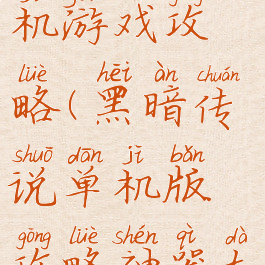 机游戏攻
lüè hēi àn chuán
略(黑暗传
shuō dān jī bǎn
说单机版
gōng lüè shén qì dà
攻略神器大